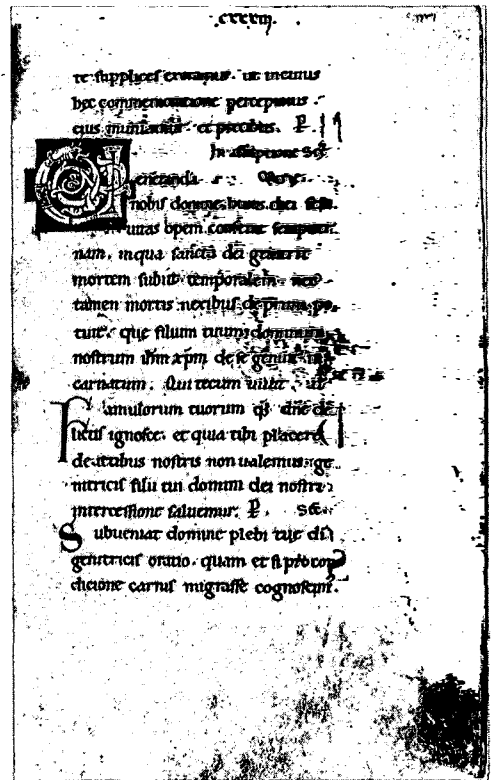 .cxxxiii.
te supplices exoramus. ut intimus
hec commemoratione percepimus.
eius muniamur et precibus. P
In assuptione Sce
Veneranda
nobis domine huius diei festi
uitas opem conferat sempiter
nam. inqua sancta dei genitrix
mortem subiit temporalem nec
tamen mortis nexibus deprimi po
tuit. que filium tuum dominum
nostrum ihm xpm de se genuit in
carnatum. Qui tecum uiuit
Famulorum tuorum qs dne de
lictis ignosce. et quia tibi placere
de actibus nostris non ualemus. ge
nitricis filii tui domini dei nostri
intercessione saluemur. P. Sec
Subueniat domine plebi tue di
genitricis oratio. quam et si pro con
dicione carnis migrasse cognoscim.